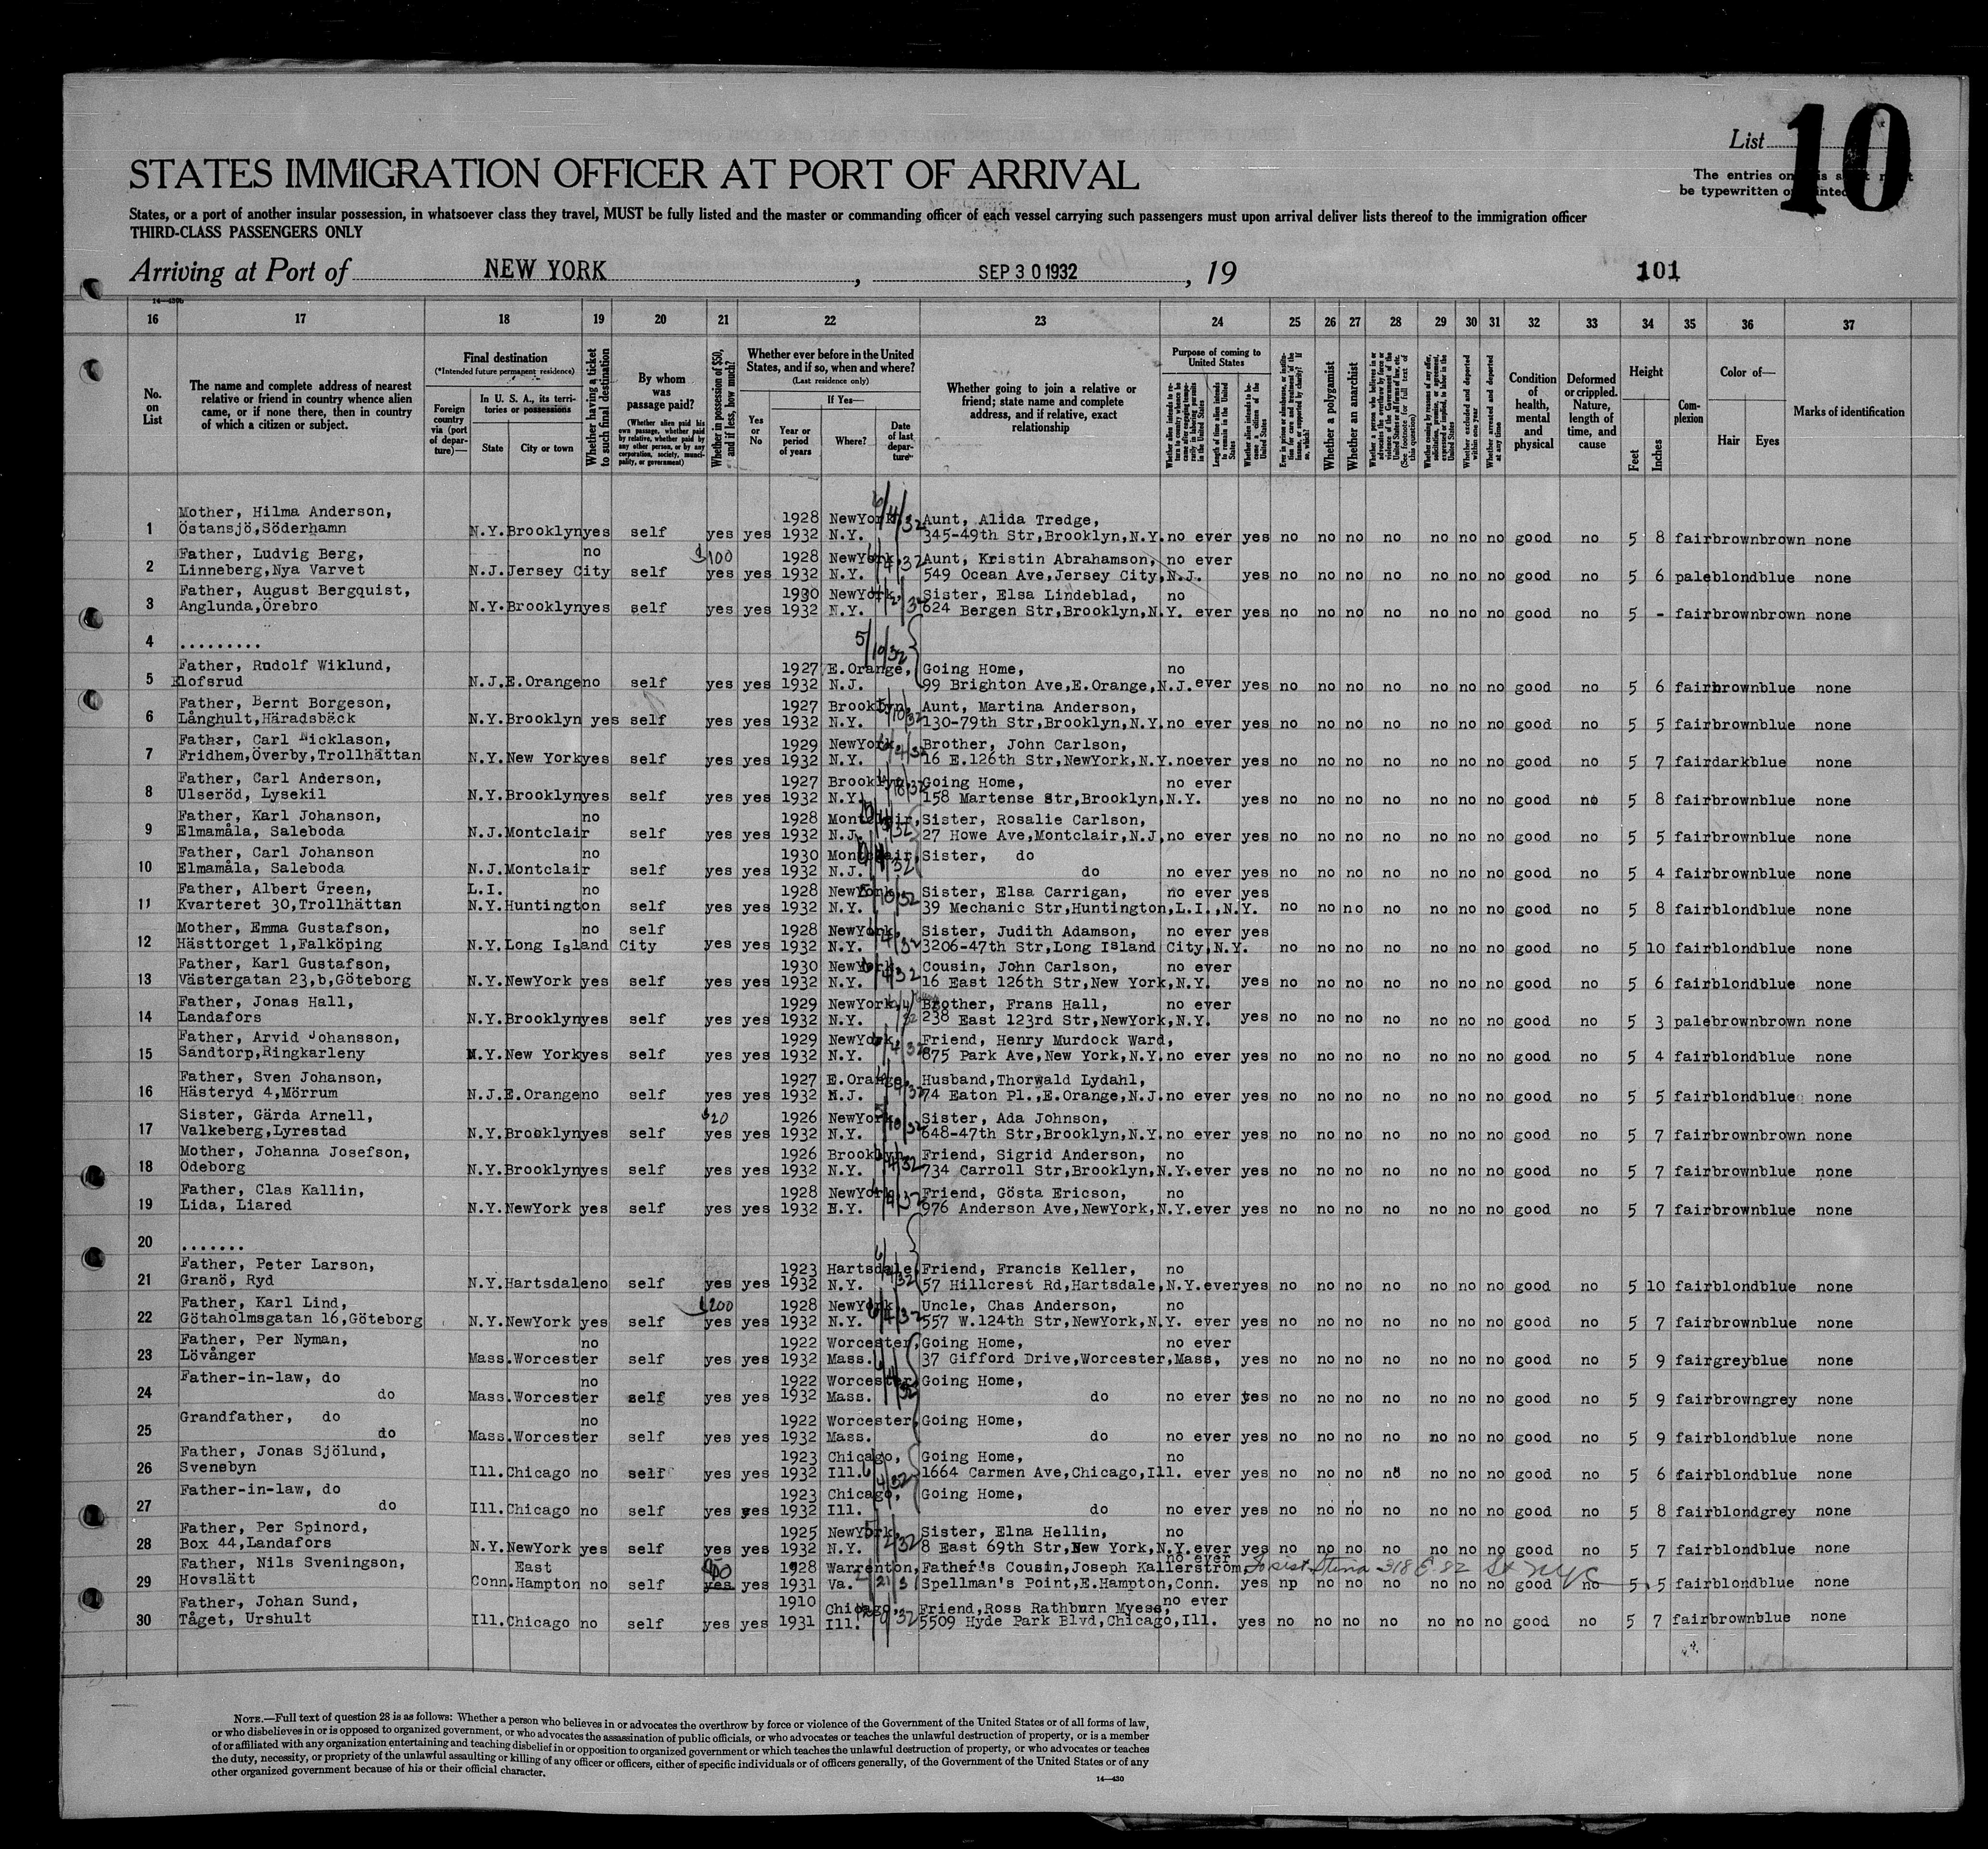 List 10
The entries on
be typewritten or printed
STATES IMMIGRATION OFFICER AT PORT OF ARRIVAL
States, or a port of another insular possession, in whatsoever class they travel, MUST be fully listed and the master or commanding officer of each vessel carrying such passengers must upon arrival deliver lists thereof to the immigration officer
THIRD-CLASS PASSENGERS ONLY
Arriving at Port of NEW YORK, SEP 30 1932, 19 101
16 17 18 19 20 21 22 23 24 25 26 27 28 29 30 31 32 33 34 35 36 37
No. on List
The name and complete address of nearest relative or friend in country whence alien came, or if none there, then in country of which a citizen or subject.
Final destination
(*Intended future permanent residence)
Foreign country via (port of departure)—
In U. S. A., its territories or possessions
State City or town
Whether having a ticket to such final destination
By whom was passage paid?
(Whether alien paid his own passage, whether paid by relative, whether paid by any other person, or by any corporation, society, municipality, or government)
Whether in possession of $50, and if less, how much?
Whether ever before in the United States, and if so, when and where?
(Last residence only)
Yes or No
If Yes—
Year or period of years Where? Date of last departure
Whether going to join a relative or friend; state name and complete address, and if relative, exact relationship
Purpose of coming to United States
Length of time alien intends to remain in the United States
Whether alien intends to become a citizen of the United States
Whether a polygamist
Whether an anarchist
Whether excluded and deported within one year
Whether arrested and deported at any time
Condition of health, mental and physical
Deformed or crippled. Nature, length of time, and cause
Height
Feet Inches
Complexion
Color of—
Hair Eyes
Marks of identification
Mother, Hilma Anderson, 1928 NewYork, 6/4/32 Aunt, Alida Tredge,
1 Östansjö,Söderhamn N.Y. Brooklyn yes self yes yes 1932 N.Y. 345-49th Str,Brooklyn,N.Y. no ever yes no no no no no no no good no 5 8 fair brown brown none
Father, Ludvig Berg, no $100 1928 NewYork, Aunt, Kristin Abrahamson, no ever
2 Linneberg,Nya Varvet N.J. Jersey City self yes yes 1932 N.Y. 549 Ocean Ave,Jersey City,N.J. yes no no no no no no no good no 5 6 pale blond blue none
Father, August Bergquist, 1930 NewYork, Sister, Elsa Lindeblad, no
3 Anglunda,Örebro N.Y. Brooklyn yes self yes yes 1932 N.Y. 624 Bergen Str,Brooklyn,N.Y. ever yes no no no no no no no good no 5 - fair brown brown none
4 ......... 5/10/32
Father, Rudolf Wiklund, 1927 E.Orange, Going Home, no
5 Klofsrud N.J. E.Orange no self yes yes 1932 N.J. 99 Brighton Ave,E.Orange,N.J. ever yes no no no no no no no good no 5 6 fair brown blue none
Father, Bernt Borgeson, 1927 Brooklyn, Aunt, Martina Anderson,
6 Långhult,Häradsbäck N.Y. Brooklyn yes self yes yes 1932 N.Y. 130-79th Str,Brooklyn,N.Y. no ever yes no no no no no no no good no 5 5 fair brown blue none
Father, Carl Nicklason, 1929 NewYork, Brother, John Carlson,
7 Fridhem,Överby,Trollhättan N.Y. New York yes self yes yes 1932 N.Y. 16 E.126th Str,NewYork,N.Y. no ever yes no no no no no no no good no 5 7 fair dark blue none
Father, Carl Anderson, 1927 Brooklyn, Going Home, no ever
8 Ulseröd, Lysekil N.Y. Brooklyn yes self yes yes 1932 N.Y. 158 Martense Str,Brooklyn,N.Y. yes no no no no no no no good no 5 8 fair brown blue none
Father, Karl Johanson, no 1928 Montclair, Sister, Rosalie Carlson,
9 Elmamåla, Saleboda N.J. Montclair self yes yes 1932 N.J. 27 Howe Ave,Montclair,N.J, no ever yes no no no no no no no good no 5 5 fair brown blue none
Father, Carl Johanson no 1930 Montclair, Sister, do
10 Elmamåla, Saleboda N.J. Montclair self yes yes 1932 N.J. do no ever yes no no no no no no no good no 5 4 fair brown blue none
Father, Albert Green, L.I. no 1928 NewYork, Sister, Elsa Carrigan, no ever yes
11 Kvarteret 30,Trollhättan N.Y. Huntington self yes yes 1932 N.Y. 39 Mechanic Str,Huntington,L.I.,N.Y. no no no no no no no good no 5 8 fair blond blue none
Mother, Emma Gustafson, no self 1928 NewYork, Sister, Judith Adamson, no ever yes
12 Hästtorget 1,Falköping N.Y. Long Island City yes yes 1932 N.Y. 3206-47th Str,Long Island City,N.Y. no no no no no no no good no 5 10 fair blond blue none
Father, Karl Gustafson, 1930 NewYork, Cousin, John Carlson, no ever
13 Västergatan 23,b,Göteborg N.Y. NewYork yes self yes yes 1932 N.Y. 16 East 126th Str,New York,N.Y. yes no no no no no no no good no 5 6 fair blond blue none
Father, Jonas Hall, 1929 NewYork, Brother, Frans Hall, no ever
14 Landafors N.Y. Brooklyn yes self yes yes 1932 N.Y. 238 East 123rd Str,NewYork,N.Y. yes no no no no no no no good no 5 3 pale brown brown none
Father, Arvid Johansson, 1929 NewYork, Friend, Henry Murdock Ward,
15 Sandtorp,Ringkarleny N.Y. New York yes self yes yes 1932 N.Y. 875 Park Ave,New York,N.Y. no ever yes no no no no no no no good no 5 4 fair blond blue none
Father, Sven Johanson, 1927 E.Orange, Husband,Thorwald Lydahl,
16 Hästeryd 4,Mörrum N.J. E.Orange no self yes yes 1932 N.J. 74 Eaton Pl.,E.Orange,N.J. no ever yes no no no no no no no good no 5 5 fair blond blue none
Sister, Gärda Arnell, $20 1926 NewYork, Sister, Ada Johnson,
17 Valkeberg,Lyrestad N.Y. Brooklyn yes self yes yes 1932 N.Y. 648-47th Str,Brooklyn,N.Y. no ever yes no no no no no no no good no 5 7 fair brown brown none
Mother, Johanna Josefson, 1926 Brooklyn, Friend, Sigrid Anderson, no
18 Ödeborg N.Y. Brooklyn yes self yes yes 1932 N.Y. 734 Carroll Str,Brooklyn,N.Y. ever yes no no no no no no no good no 5 7 fair brown blue none
Father, Clas Kallin, 1928 NewYork, Friend, Gösta Ericson, no
19 Lida, Liared N.Y. NewYork yes self yes yes 1932 N.Y. 976 Anderson Ave,NewYork,N.Y. ever yes no no no no no no no good no 5 7 fair brown blue none
20 .......
Father, Peter Larson, 1923 Hartsdale, Friend, Francis Keller, no
21 Granö, Ryd N.Y. Hartsdale no self yes yes 1932 N.Y. 57 Hillcrest Rd,Hartsdale,N.Y. ever yes no no no no no no no good no 5 10 fair blond blue none
Father, Karl Lind, $200 1928 NewYork, Uncle, Chas Anderson, no
22 Götaholmsgatan 16,Göteborg N.Y. NewYork yes self yes yes 1932 N.Y. 557 W.124th Str,NewYork,N.Y. ever yes no no no no no no no good no 5 7 fair brown blue none
Father, Per Nyman, no 1922 Worcester, Going Home, no ever
23 Lövånger Mass. Worcester self yes yes 1932 Mass. 37 Gifford Drive,Worcester,Mass, yes no no no no no no no good no 5 9 fair grey blue none
Father-in-law, do no 1922 Worcester, Going Home,
24 do Mass. Worcester self yes yes 1932 Mass. do no ever yes no no no no no no no good no 5 9 fair brown grey none
Grandfather, do no 1922 Worcester, Going Home,
25 do Mass. Worcester self yes yes 1932 Mass. do no ever yes no no no no no no no good no 5 9 fair blond blue none
Father, Jonas Sjölund, 1923 Chicago, Going Home, no
26 Svenebyn Ill. Chicago no self yes yes 1932 Ill. 1664 Carmen Ave,Chicago,Ill. ever yes no no no no no no no good no 5 6 fair blond blue none
Father-in-law, do 1923 Chicago, Going Home,
27 do Ill. Chicago no self yes yes 1932 Ill. do no ever yes no no no no no no no good no 5 8 fair blond grey none
Father, Per Spinord, 1925 NewYork, Sister, Elna Hellin, no
28 Box 44,Landafors N.Y. NewYork yes self yes yes 1932 N.Y. 8 East 69th Str,New York,N.Y. ever yes no no no no no no no good no 5 7 fair blond blue none
Father, Nils Sveningson, East $50 1928 Warrenton, Father's Cousin,Joseph Kallerström, no ever To sist. Stina 318 E 82 St NYC
29 Hovslätt Conn. Hampton no self yes yes 1931 Va. Spellman's Point,E.Hampton,Conn. yes np no no no no no no good no 5 5 fair blond blue none
Father, Johan Sund, 1910 Chicago, Friend,Ross Rathburn Myess, no ever
30 Tåget, Urshult Ill. Chicago no self yes yes 1931 Ill. 5509 Hyde Park Blvd,Chicago,Ill. yes no no no no no no no good no 5 7 fair brown blue none
NOTE.—Full text of question 28 is as follows: Whether a person who believes in or advocates the overthrow by force or violence of the Government of the United States or of all forms of law,
or who disbelieves in or is opposed to organized government, or who advocates the assassination of public officials, or who advocates or teaches the unlawful destruction of property, or is a member
of or affiliated with any organization entertaining and teaching disbelief in or opposition to organized government or which teaches the unlawful destruction of property, or who advocates or teaches
the duty, necessity, or propriety of the unlawful assaulting or killing of any officer or officers, either of specific individuals or of officers generally, of the Government of the United States or of any
other organized government because of his or their official character.
14—430